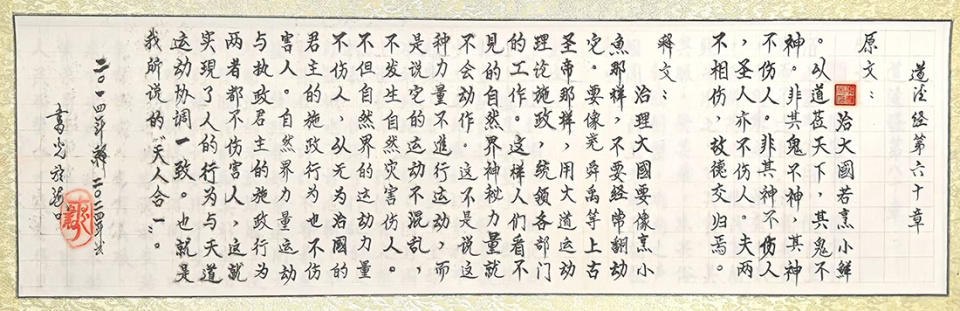 道德经第六十章
原文：
治大國若烹小鮮
。以道莅天下，其鬼不
神。非其鬼不神，其神
不伤人。非其神不伤人
，圣人亦不伤人。夫两
不相伤，故德交归焉。
释文：
治理大國要像烹小
魚那样，不要经常翻动
它。要像尧舜禹等上古
圣帝那样，用大道运动
理论施政，统领各部门
的工作。这样人们看不
見的自然界神秘力量就
不会动作。这不是说这
种力量不進行运动，而
是说它的运动不混乱，
不发生自然灾害伤人。
不但自然界的运动力量
不伤人，从无为治國的
君主的施政行为也不伤
害人。自然界力量运动
与执政君主的施政行为
两者都不伤害人，这就
实現了人的行为与天道
运动协调一致。也就是
我所说的“天人合一”。
二〇一四年释 二〇二四年书